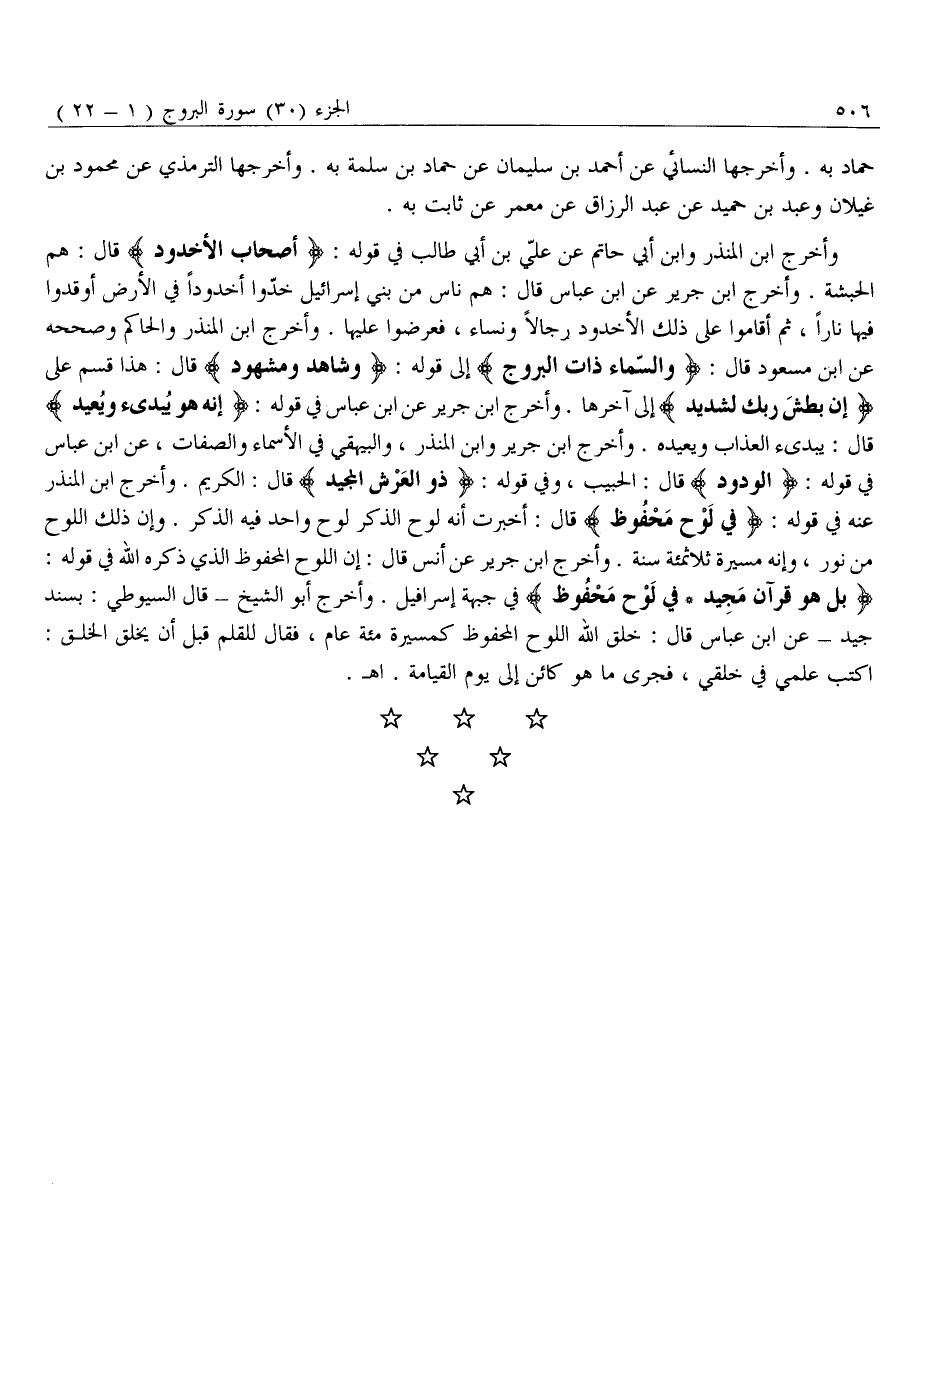 ٥٠٦ الجزء (٣٠) سورة البروج ( ١ – ٢٢ )
حماد به . وأخرجها النسائي عن أحمد بن سليمان عن حماد بن سلمة به . وأخرجها الترمذي عن محمود بن
غيلان وعبد بن حميد عن عبد الرزاق عن معمر عن ثابت به .
وأخرج ابن المنذر وابن أبي حاتم عن عليّ بن أبي طالب في قوله : ﴿ أصحاب الأخدود ﴾ قال : هم
الحبشة . وأخرج ابن جرير عن ابن عباس قال : هم ناس من بني إسرائيل خدّوا أخدوداً في الأرض أوقدوا
فيها ناراً ، ثم أقاموا على ذلك الأخدود رجالاً ونساء ، فعرضوا عليها . وأخرج ابن المنذر والحاكم وصححه
عن ابن مسعود قال : ﴿ والسّماء ذات البروج ﴾ إلى قوله : ﴿ وشاهد ومشهود ﴾ قال : هذا قسم على
﴿ إن بطشَ ربك لشديد ﴾ إلى آخرها . وأخرج ابن جرير عن ابن عباس في قوله : ﴿ إنه هو يُبدىء ويُعيد ﴾
قال : يبدىء العذاب ويعيده . وأخرج ابن جرير وابن المنذر ، والبيهقي في الأسماء والصفات ، عن ابن عباس
في قوله : ﴿ الودود ﴾ قال : الحبيب ، وفي قوله : ﴿ ذو العَرْش المجيد ﴾ قال : الكريم . وأخرج ابن المنذر
عنه في قوله : ﴿ في لَوْح مَحْفُوظ ﴾ قال : أخبرت أنه لوح الذكر لوح واحد فيه الذكر . وإن ذلك اللوح
من نور ، وإنه مسيرة ثلاثمئة سنة . وأخرج ابن جرير عن أنس قال : إن اللوح المحفوظ الذي ذكره الله في قوله :
﴿ بل هو قرآن مَجِيد * في لَوْح مَحْفُوظ ﴾ في جبهة إسرافيل . وأخرج أبو الشيخ – قال السيوطي : بسند
جيد – عن ابن عباس قال : خلق الله اللوح المحفوظ كمسيرة مئة عام ، فقال للقلم قبل أن يخلق الخلق :
اكتب علمي في خلقي ، فجرى ما هو كائن إلى يوم القيامة . اهـ .